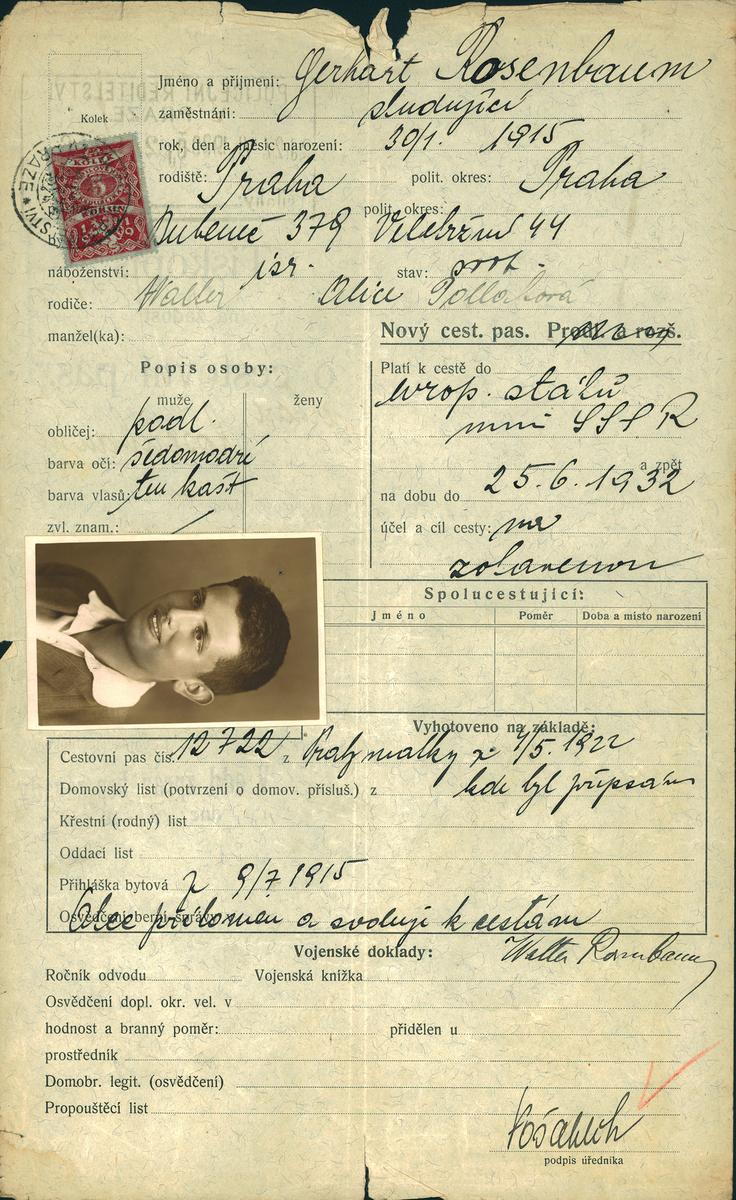 Jméno a přijmení: Gerhart Rosenbaum
Kolek
zaměstnání: studující
rok, den a měsíc narození: 30/1. 1915
rodiště: Praha polit. okres: Praha
polit. okres:
Bubeneč 379 44
náboženství: isr. stav: svob.
rodiče: Walter Alice Pollaková
manžel(ka):
Nový cest. pas. Prodl. a rozš.
Popis osoby:
muže ženy
obličej: podl.
barva očí: šedomodré
barva vlasů: tm kašt
zvl. znam.: /
Platí k cestě do
evrop. států
mimo SSSR
a zpět
na dobu do 25.6.1932
účel a cíl cesty: na
zotavenou
Spolucestující:
Jméno Poměr Doba a místo narození
Vyhotoveno na základě:
Cestovní pas čís. 12722 z Prahy matky z 4/5. 1922
Domovský list (potvrzení o domov. přísluš.) z kde byl připsán
Křestní (rodný) list
Oddací list
Přihláška bytová z 9/7 1915
Osvědčení berní správy
Otec přítomen a svoluje k cestám
Walter Rosenbaum
Vojenské doklady:
Ročník odvodu Vojenská knížka
Osvědčení dopl. okr. vel. v
hodnost a branný poměr: přidělen u
prostředník
Domobr. legit. (osvědčení)
Propouštěcí list
podpis úředníka